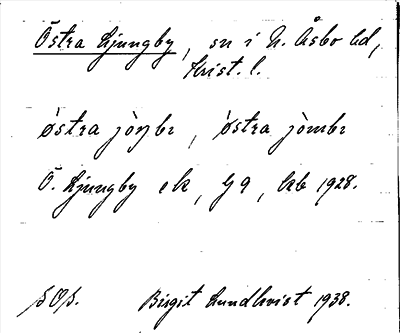 Östra Ljungby, sn i N. Åsbo hd,
Krist. l.
östra jòŋbı, östra jòmbı
Ö. Ljungby ek, G 9, lkb 1928.
Birgit Lundkvist 1938.